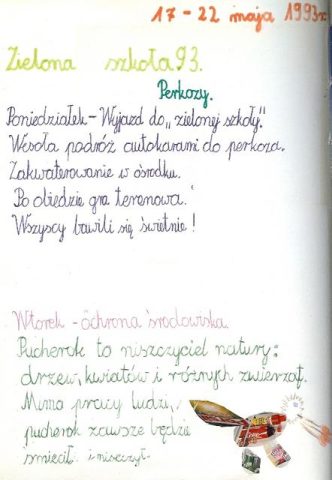 17-22 maja 1993r
Zielona szkoła 93.
Perkozy.
Poniedziałek - Wyjazd do „zielonej szkoły".
Wesoła podróż autokarami do perkoza.
Zakwaterowanie w ośrodku.
Po obiedzie gra terenowa.
Wszyscy bawili się świetnie!
Wtorek - ochrona środowiska.
Pucherok to niszczyciel natury:
drzew, kwiatów i różnych zwierząt.
Mimo pracy ludzi,
pucherok zawsze będzie
śmiecił i niszczył.